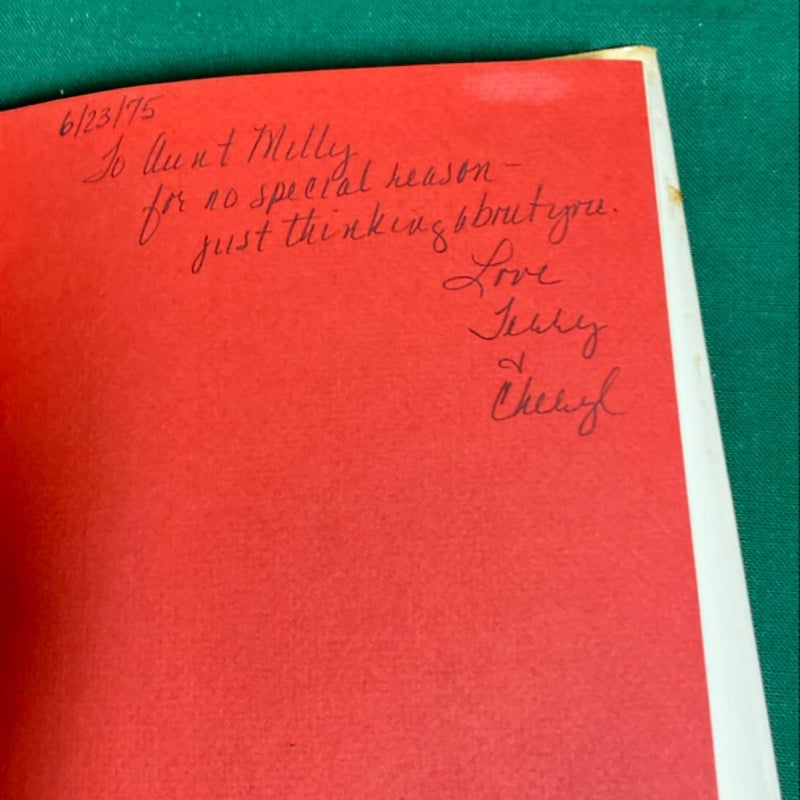 6/23/75
To Aunt Milly
for no special reason –
just thinking about you.
Love
Terry
&
Cheryl